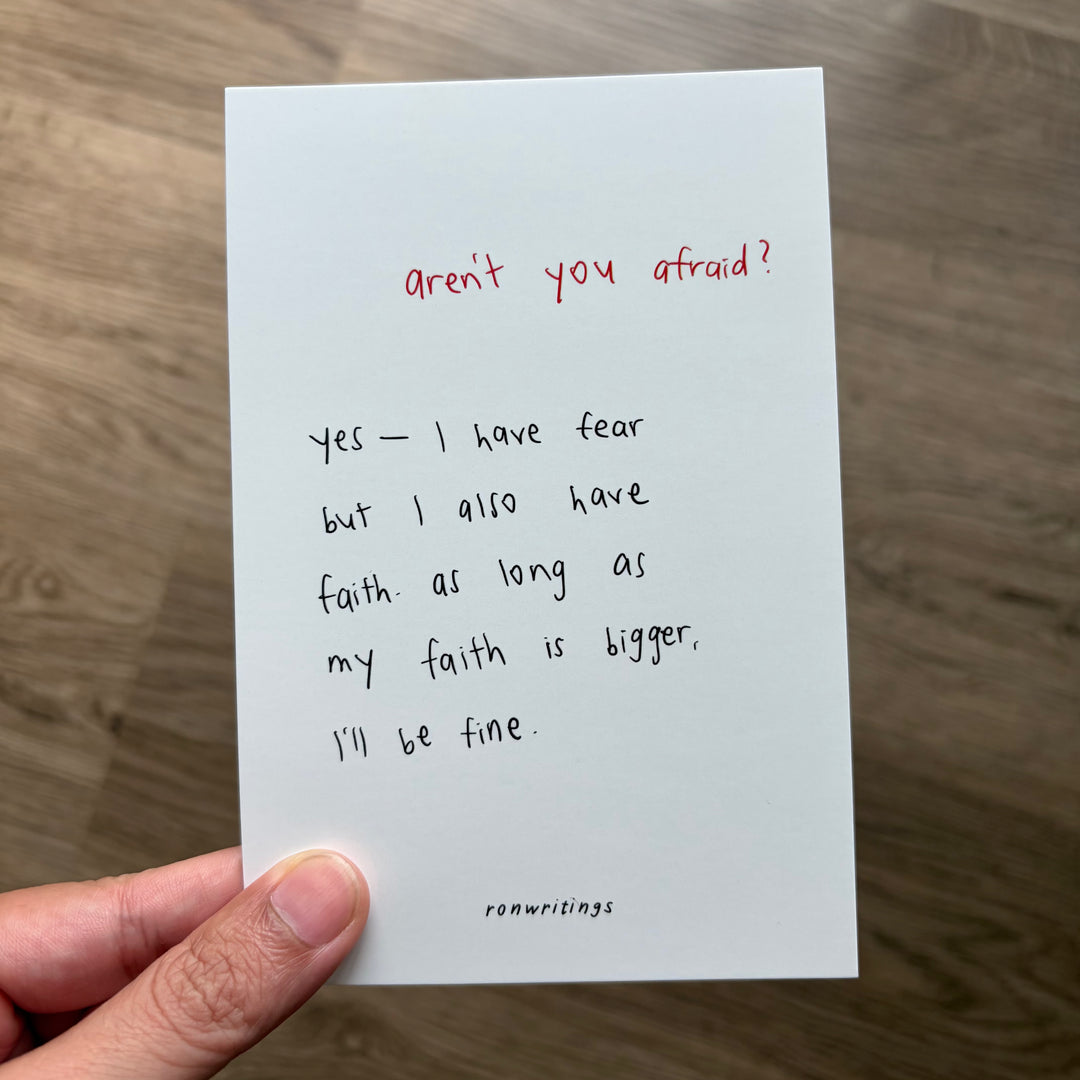 aren't you afraid?
yes — I have fear
but I also have
faith. as long as
my faith is bigger,
I'll be fine.
ronwritings